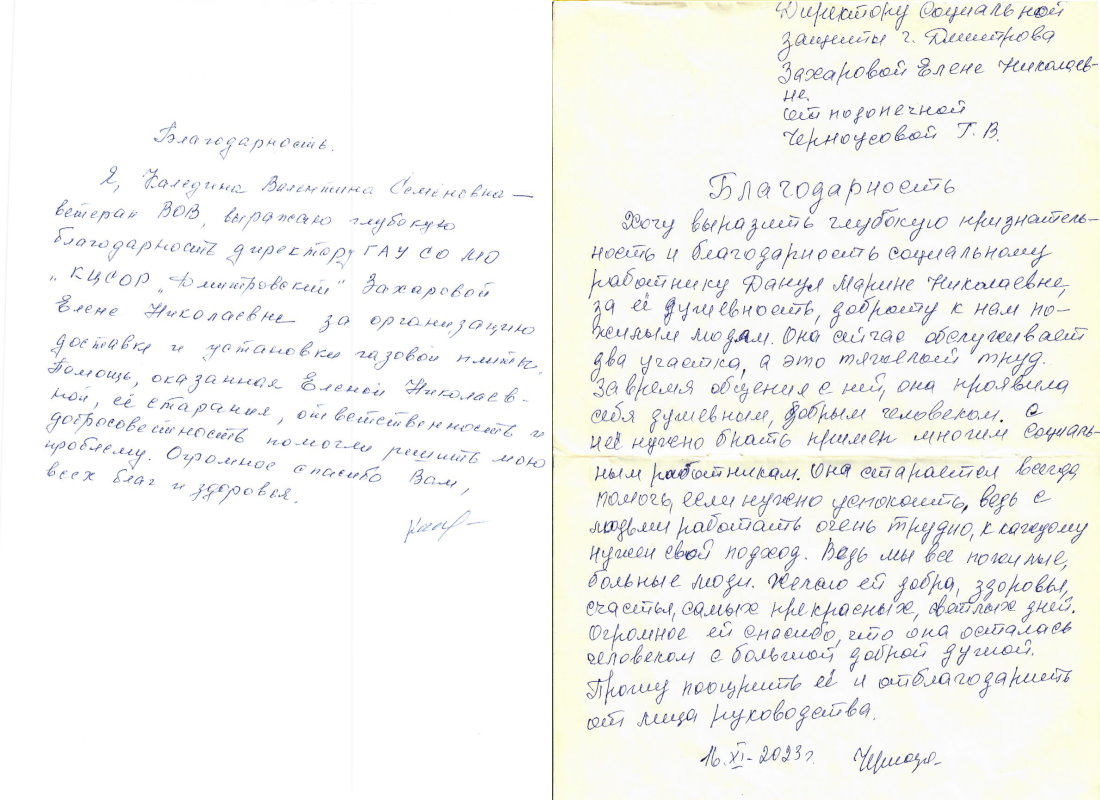 Благодарность.
Я, Каледина Валентина Семёновна —
ветеран ВОВ, выражаю глубокую
благодарность директору ГАУ СО МО
„КЦСОР „Дмитровский" Захаровой
Елене Николаевне за организацию
доставки и установки газовой плиты.
Помощь, оказанная Еленой Николаев-
ной, её старания, ответственность и
добросовестность помогли решить мою
проблему. Огромное спасибо Вам,
всех благ и здоровья.
Директору Социальной
защиты г. Дмитрова
Захаровой Елене Николаев-
не.
от подопечной
Черноусовой Г. В.
Благодарность
Хочу выразить глубокую признатель-
ность и благодарность социальному
работнику Данул Марине Николаевне,
за её душевность, доброту к нам по-
жилым людям. Она сейчас обслуживает
два участка, а это тяжелый труд.
За время общения с ней, она проявила
себя душевным, добрым человеком. С
неё нужно брать пример многим социаль-
ным работникам. Она старается всегда
помочь, если нужно успокоить, ведь с
людьми работать очень трудно, к каждому
нужен свой подход. Ведь мы все пожилые,
больные люди. Желаю ей добра, здоровья,
счастья, самых прекрасных, светлых дней.
Огромное ей спасибо, что она осталась
человеком с большой доброй душой.
Прошу поощрить её и отблагодарить
от лица руководства.
16.XI-2023г.